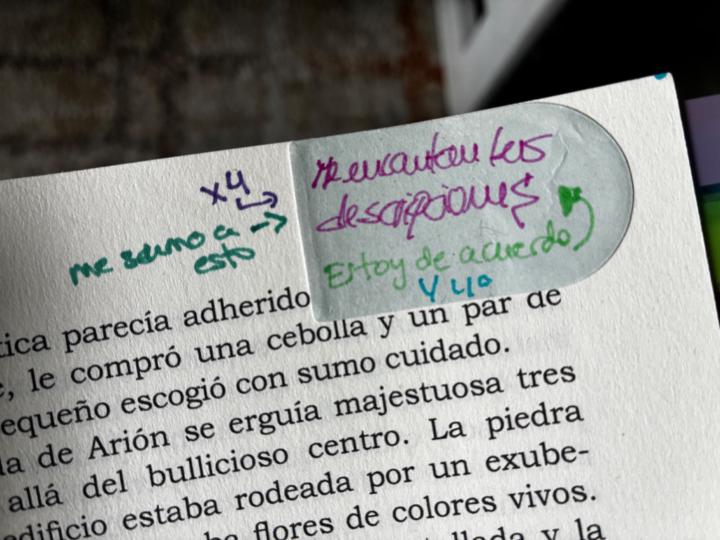 me encantan las
descripciones
x4
me sumo a
esto
Estoy de acuerdo
Y yo
tica parecía adherido
e, le compró una cebolla y un par de
equeño escogió con sumo cuidado.
la de Arión se erguía majestuosa tres
allá del bullicioso centro. La piedra
edificio estaba rodeada por un exube-
flores de colores vivos.
y la